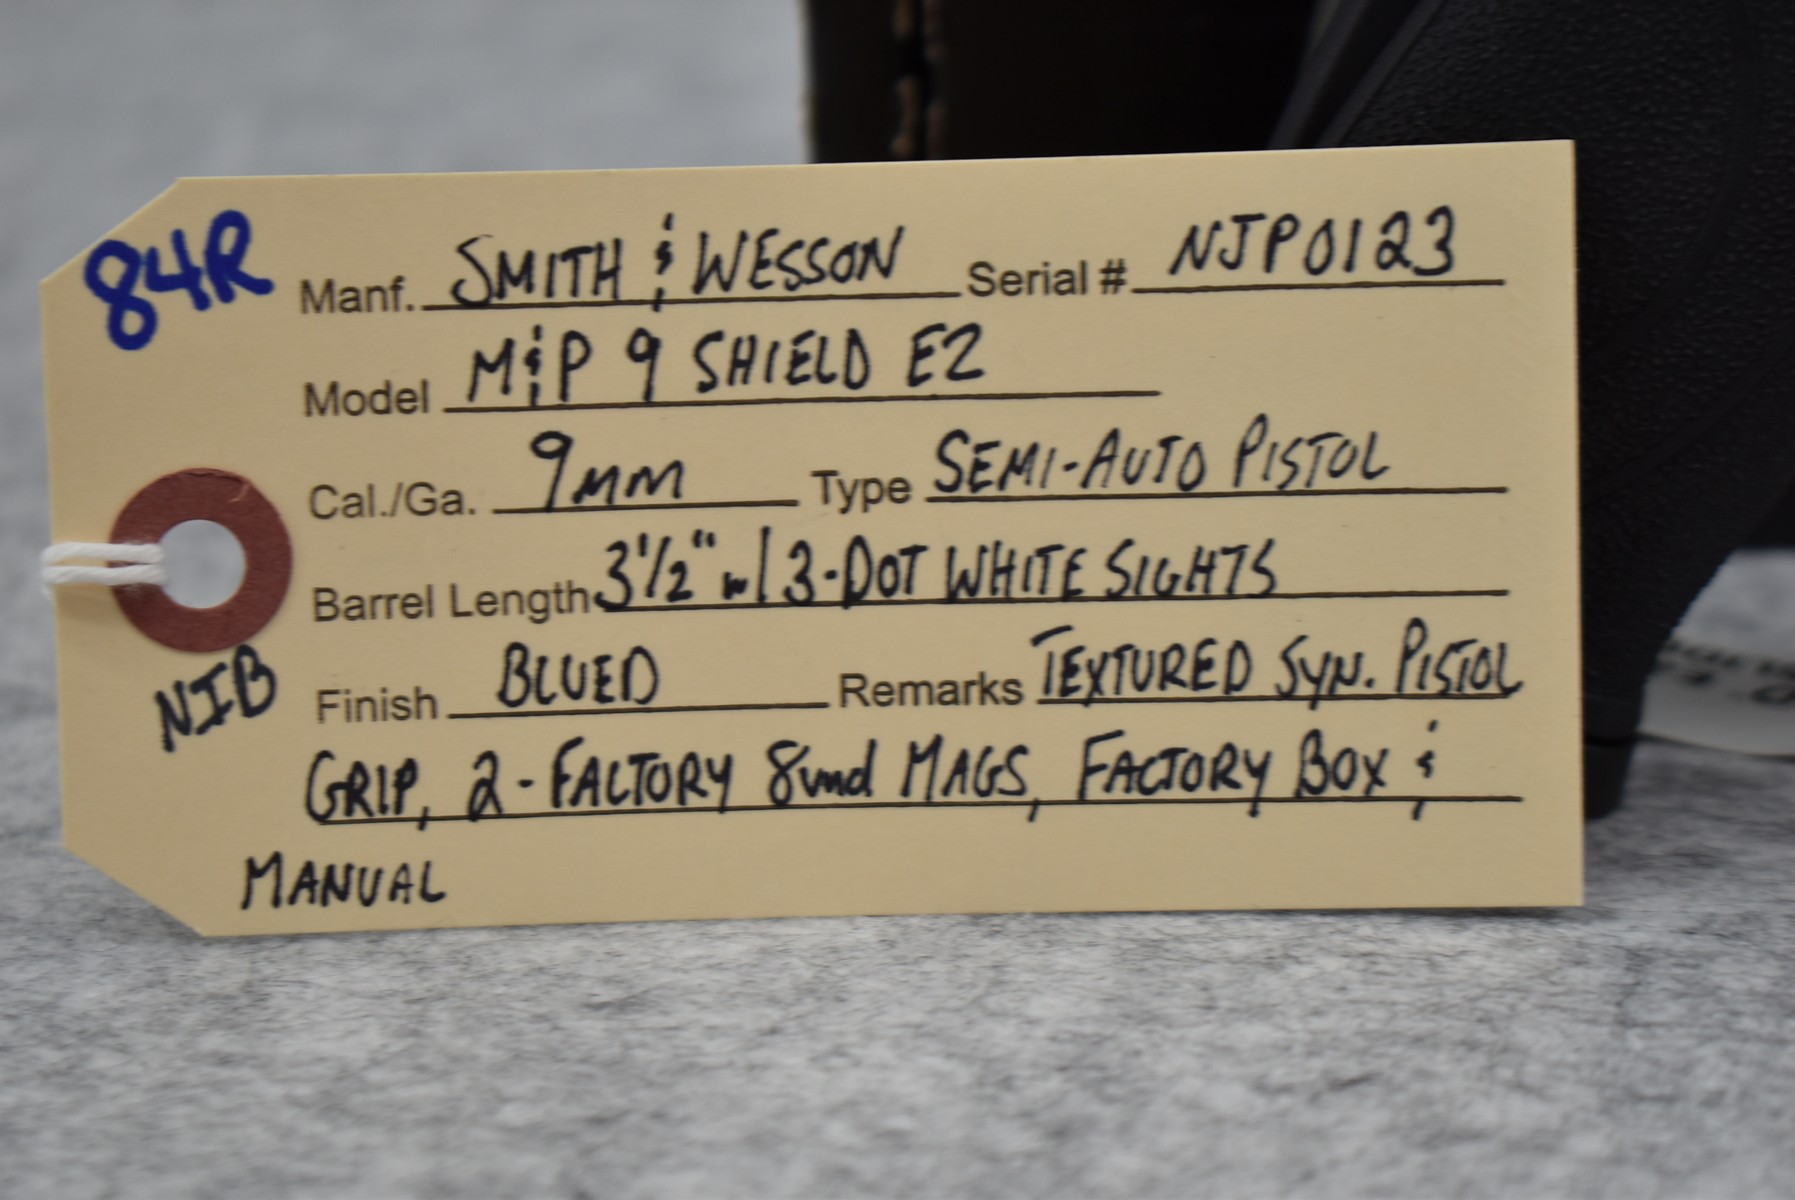 84R
Manf. SMITH & WESSON Serial # NJP0123
Model M&P 9 SHIELD EZ
Cal./Ga. 9mm Type SEMI-AUTO PISTOL
Barrel Length 3 1/2" w/ 3-DOT WHITE SIGHTS
NIB
Finish BLUED Remarks TEXTURED SYN. PISTOL
GRIP, 2-FACTORY 8rnd MAGS, FACTORY BOX &
MANUAL